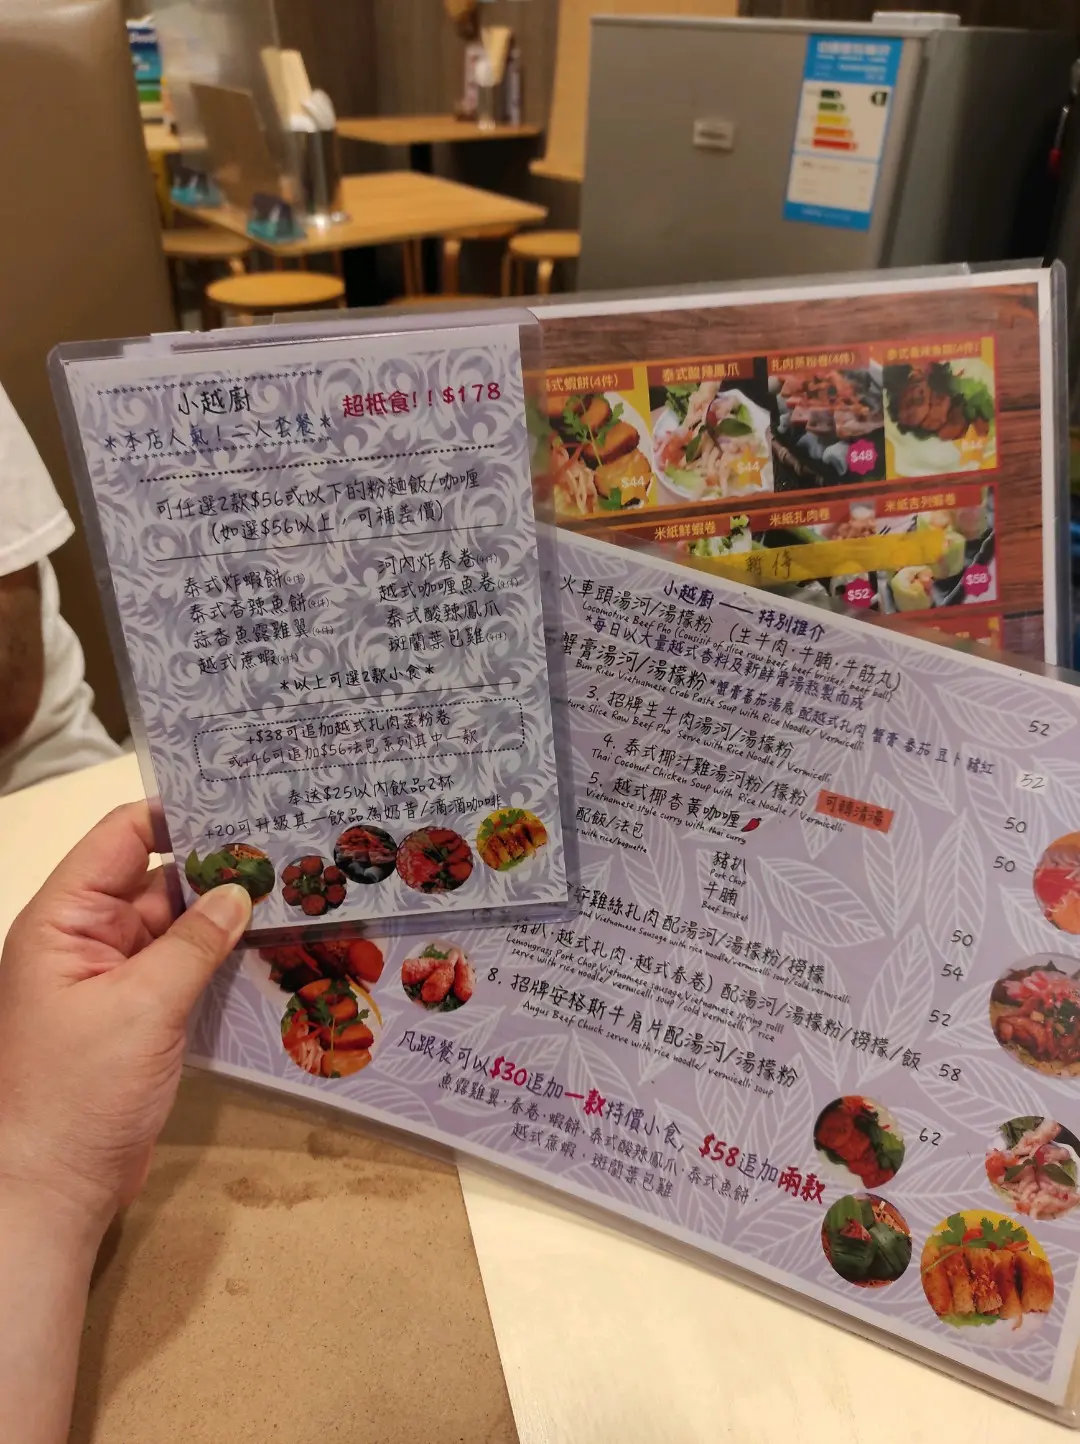 小越廚
超抵食!! $178
*本店人氣！二人套餐*
可任選2款$56或以下的粉麵飯/咖喱
(如選$56以上，可補差價)
泰式炸蝦餅(4件)
泰式香辣魚餅(4件)
蒜香魚露雞翼(4件)
越式蔗蝦(4件)
河內炸春卷(4件)
越式咖喱魚卷(4件)
泰式酸辣鳳爪
斑蘭葉包雞(4件)
*以上可選2款小食*
+$38可追加越式扎肉蒸粉卷
或+46可追加$56法包系列其中一款
奉送$25以內飲品2杯
+20可升級其一飲品為奶昔/滴滴咖啡
式蝦餅(4件)
$44
泰式酸辣鳳爪
$44
扎肉蒸粉卷(4件)
$48
泰式香辣魚餅(4件)
$44
米紙鮮蝦卷
米紙扎肉卷
米紙吉列蝦卷
暫停
$52
$58
小越廚 —— 特別推介
火車頭湯河/湯檬粉 (生牛肉·牛腩·牛筋丸)
52
Locomotive Beef Pho (Consist of slice raw beef, beef brisket, beef ball)
*每日以大量越式香料及新鮮骨湯熬製而成
蟹膏湯河/湯檬粉 *蟹膏蕃茄湯底 配越式扎肉 蟹膏 番茄 豆卜 豬紅
52
Bun Rieu Vietnamese Crab Paste Soup with Rice Noodle/ Vermicelli
3. 招牌生牛肉湯河/湯檬粉
50
ture Slice Raw Beef Pho Serve with Rice Noodle / Vermicelli
4. 泰式椰汁雞湯河粉/檬粉
可轉清湯
50
Thai Coconut Chicken Soup with Rice Noodle / Vermicelli
5. 越式椰香黃咖喱
Vietnamese style curry with thai curry
配飯/法包
r with rice/baguette
豬扒
50
Pork Chop
牛腩
54
Beef brisket
安雞絲扎肉配湯河/湯檬粉/撈檬
52
and Vietnamese Sausage with rice noodle/vermicelli soup/ cold vermicelli
豬扒·越式扎肉·越式春卷) 配湯河/湯檬粉/撈檬/飯
58
Lemongrass Pork Chop,Vietnamese sausage,Vietnamese spring rolll
serve with rice noodle/ vermicelli soup / cold vermicelli / rice
8. 招牌安格斯牛肩片配湯河/湯檬粉
62
Angus Beef Chuck serve with rice noodle/ vermicelli soup
凡跟餐可以$30追加一款特價小食，$58追加兩款
魚露雞翼·春卷·蝦餅·泰式酸辣鳳爪·泰式魚餅·
越式蔗蝦·斑蘭葉包雞